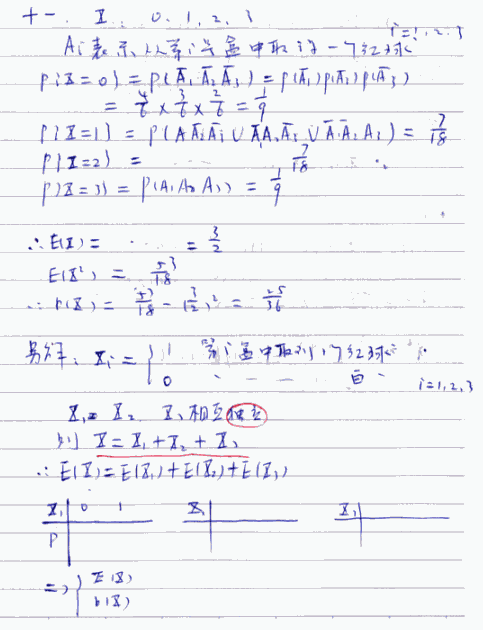 十一. X: 0, 1, 2, 3
Ai表示从第i盒中取得一个红球 i=1, 2, 3
P{X=0} = P(Ā₁Ā₂Ā₃) = P(Ā₁)P(Ā₂)P(Ā₃)
= 4/6 × 3/6 × 2/6 = 1/9
P{X=1} = P(AĀ₂Ā₃ ∪ Ā₁A₂Ā₃ ∪ Ā₁Ā₂A₃) = 7/18
P{X=2} = 7/18
P{X=3} = P(A₁A₂A₃) = 1/9
∴ E(X) = = 3/2
E(X²) = 53/18
∴ D(X) = 53/18 - (3/2)² = 25/36
另解: Xi = { 1 第i盒中取到1个红球
0 白 i=1,2,3
X₁ X₂ X₃ 相互独立
则 X = X₁ + X₂ + X₃
∴ E(X) = E(X₁) + E(X₂) + E(X₃)
X₁ 0 1 X₂ X₃
P
⇒ { E(X)
D(X)